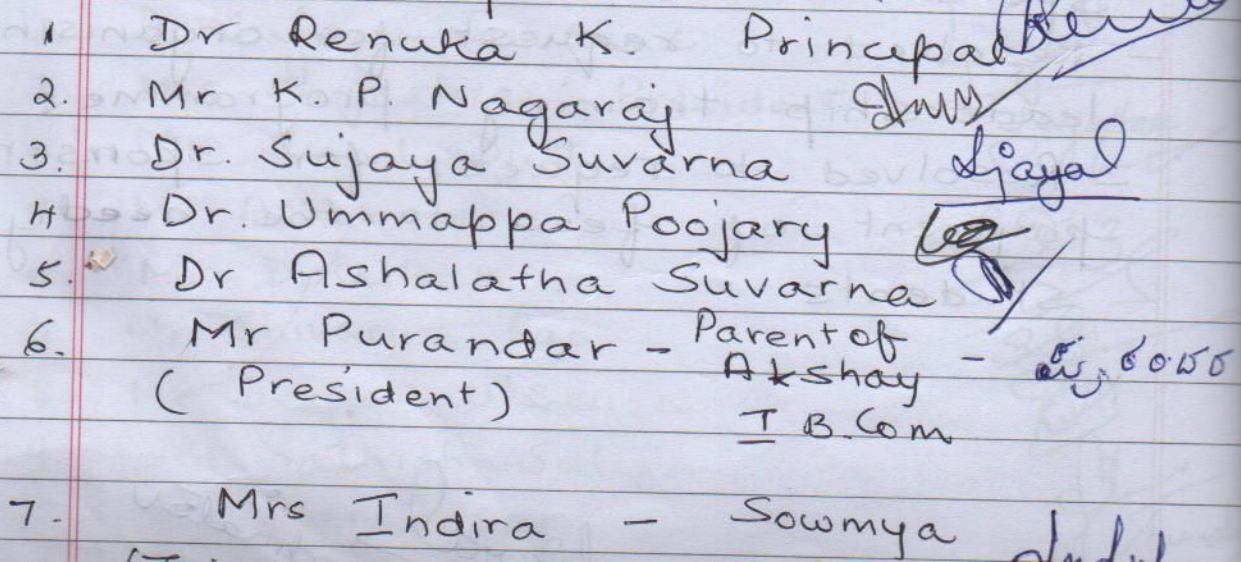 1 Dr Renuka K. Principal
2. Mr K. P. Nagaraj
3. Dr. Sujaya Suvarna
4 Dr. Ummappa Poojary
5. Dr Ashalatha Suvarna
6. Mr Purandar - Parent of -
(President) Akshay
I B.Com
7. Mrs Indira - Sowmya